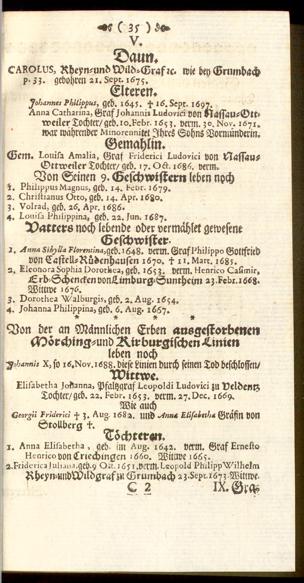 ( 35 )
V.
Daun.
CAROLUS, Rheyn- und Wild-Graf ꝛc. wie bey Grumbach
p. 33. gebohren 21. Sept. 1675.
Elteren.
Johannes Philippus, geb. 1645. † 16. Sept. 1697.
Anna Catharina, Graf Johannis Ludovici von Nassau-Ott-
weiler Tochter/ geb. 10. Febr. 1653. verm. 30. Nov. 1671.
war währender Minorennitet Ihres Sohns Vormünderin.
Gemahlin.
Gem. Louisa Amalia, Graf Friderici Ludovici von Nassau-
Ottweiler Tochter/ geb. 17. Oct. 1686. verm.
Von Seinen 9. Geschwistern leben noch
1. Philippus Magnus, geb. 14. Febr. 1679.
2. Christianus Otto, geb. 14. Apr. 1680.
3. Volrad, geb. 26. Apr. 1686.
4. Louisa Philippina, geb. 22. Jun. 1687.
Vatters noch lebende oder vermählet gewesene
Geschwister.
1. Anna Sibylla Florentina, geb. 1648. verm. Graf Philippo Gottfried
von Castell Rüdenhausen 1670. † 11. Matt. 1685.
2. Eleonora Sophia Dorothea, geb. 1653. verm. Henrico Casimir,
Erb-Schencken von Limburg-Suntheim 23. Febr. 1668.
Wittwe 1676.
3. Dorothea Walburgis, geb. 2. Aug. 1654.
4. Johanna Philippina, geb. 6. Aug. 1657.
* * * * *
Von der an Männlichen Erben ausgestorbenen
Mörching- und Kirburgischen Linien
leben noch
Johannis X, so 16. Nov. 1688. diese Linien durch seinen Tod beschlossen/
Wittwe.
Elisabetha Johanna, Pfaltzgraf Leopoldi Ludovici zu Veldentz
Tochter/ geb. 22. Febr. 1653. verm. 27. Dec. 1669.
Wie auch
Georgii Friderici † 3. Aug. 1682. und Annæ Elisabethæ Gräfin von
Stollberg †.
Töchteren.
1. Anna Elisabetha, geb. im Aug. 1642. verm. Graf Ernesto
Henrico von Criechingen 1660. Wittwe 1665.
2. Friderica Juliana, geb. 9 Oct. 1651. verm. Leopold Philipp Wilhelm
Rheyn- und Wildgraf zu Grumbach 23. Sept. 1673. Wittwe.
C 2 IX. Gra-